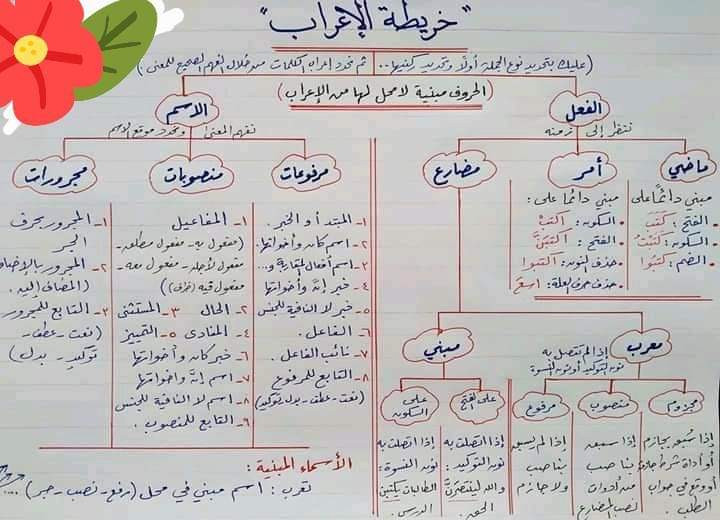 "خريطة الإعراب"
(عليك بتحديد نوع الجملة أولاً وتحديد ركنيها... ثم تحدد إعراب الكلمات من خلال الفهم الصحيح للمعنى.)
(الحروف مبنية لا محل لها من الإعراب)
الفعل
ننظر إلى زمنه
ماضي
مبني دائماً على
• الفتح: كَتَبَ
• السكون: كَتَبْتُ
• الضم: كَتَبُوا
أمر
مبني دائما على:
• السكون: اكتبْ
• الفتح: اكتبَنَّ
• حذف النون: اكتبوا
• حذف حرف العلة: اسعَ
مضارع
معرب
إذا لم تتصل به
نون التوكيد أو نون النسوة
مجزوم
إذا سُبق بجازم
أو أداة شرط جازمة
أو وقع في جواب
الطلب.
منصوب
إذا سبقه
ناصب
من أدوات
نصب المضارع
مرفوع
إذا لم يسبق
بناصب
ولا جازم
مبني
على الفتح
إذا اتصلت به
نون التوكيد:
والله لينتصرنَّ
الحق.
على السكون
إذا اتصلت به
نون النسوة:
الطالبات يكتبْنَ
الدرس.
الاسم
نفهم المعنى ونحدد موقع الاسم
مرفوعات
١- المبتدأ والخبر.
٢- اسم كان وأخواتها.
٣- اسم أفعال المقاربة و...
٤- خبر إنَّ وأخواتها
٥- خبر لا النافية للجنس
٦- الفاعل.
٧- نائب الفاعل.
٨- التابع للمرفوع
(نعت-عطف-بدل-توكيد)
منصوبات
١- المفاعيل
(مفعول به-مفعول مطلق-
مفعول لأجله-مفعول معه-
مفعول فيه (ظرف)
٢- الحال ٣- المستثنى
٤- المنادى ٥- التمييز
٦- خبر كان وأخواتها
٧- اسم إنَّ وأخواتها
٨- اسم لا النافية للجنس
٩- التابع للمنصوب.
مجرورات
١- المجرور بحرف
الجر
٢- المجرور بالإضافة
(المضاف إليه).
٣- التابع للمجرور
(نعت-عطف-
توكيد-بدل)
الأسماء المبنية:
تعرب: اسم مبني في محل (رفع-نصب-جر)....